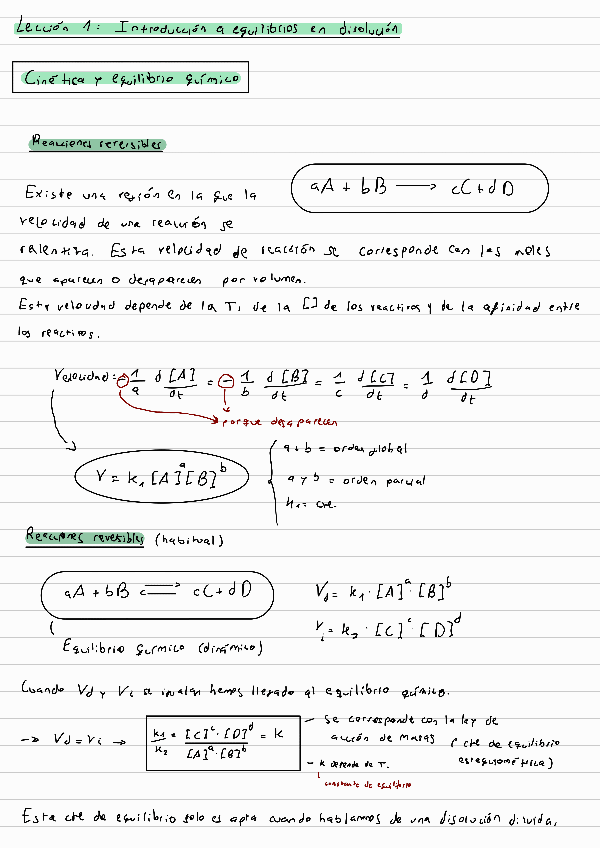 Lección 1: Introducción a equilibrios en disolución
Cinética y equilibrio químico
Reacciones reversibles
aA + bB → cC + dD
Existe una región en la que la
velocidad de una reacción se
ralentiza. Esta velocidad de reacción se corresponde con los moles
que aparecen o desaparecen por volumen.
Esta velocidad depende de la T, de la [] de los reactivos y de la afinidad entre
los reactivos.
Velocidad: - 1/a d[A]/dt = - 1/b d[B]/dt = 1/c d[C]/dt = 1/d d[D]/dt
porque desaparecen
V = k₁ [A]ᵃ [B]ᵇ
a + b = orden global
a y b = orden parcial
k₁ = cte.
Reacciones reversibles (habitual)
aA + bB ⇌ cC + dD
Vd = k₁ · [A]ᵃ · [B]ᵇ
Vi = k₂ · [C]ᶜ · [D]ᵈ
Equilibrio químico (dinámico)
Cuando Vd y Vi se igualan hemos llegado al equilibrio químico.
→ Vd = Vi → k₁/k₂ = [C]ᶜ · [D]ᵈ / [A]ᵃ · [B]ᵇ = k
- Se corresponde con la ley de
acción de masas (cte de equilibrio
estequiométrica)
- k depende de T.
constante de equilibrio
Esta cte de equilibrio solo es apta cuando hablamos de una disolución diluida.